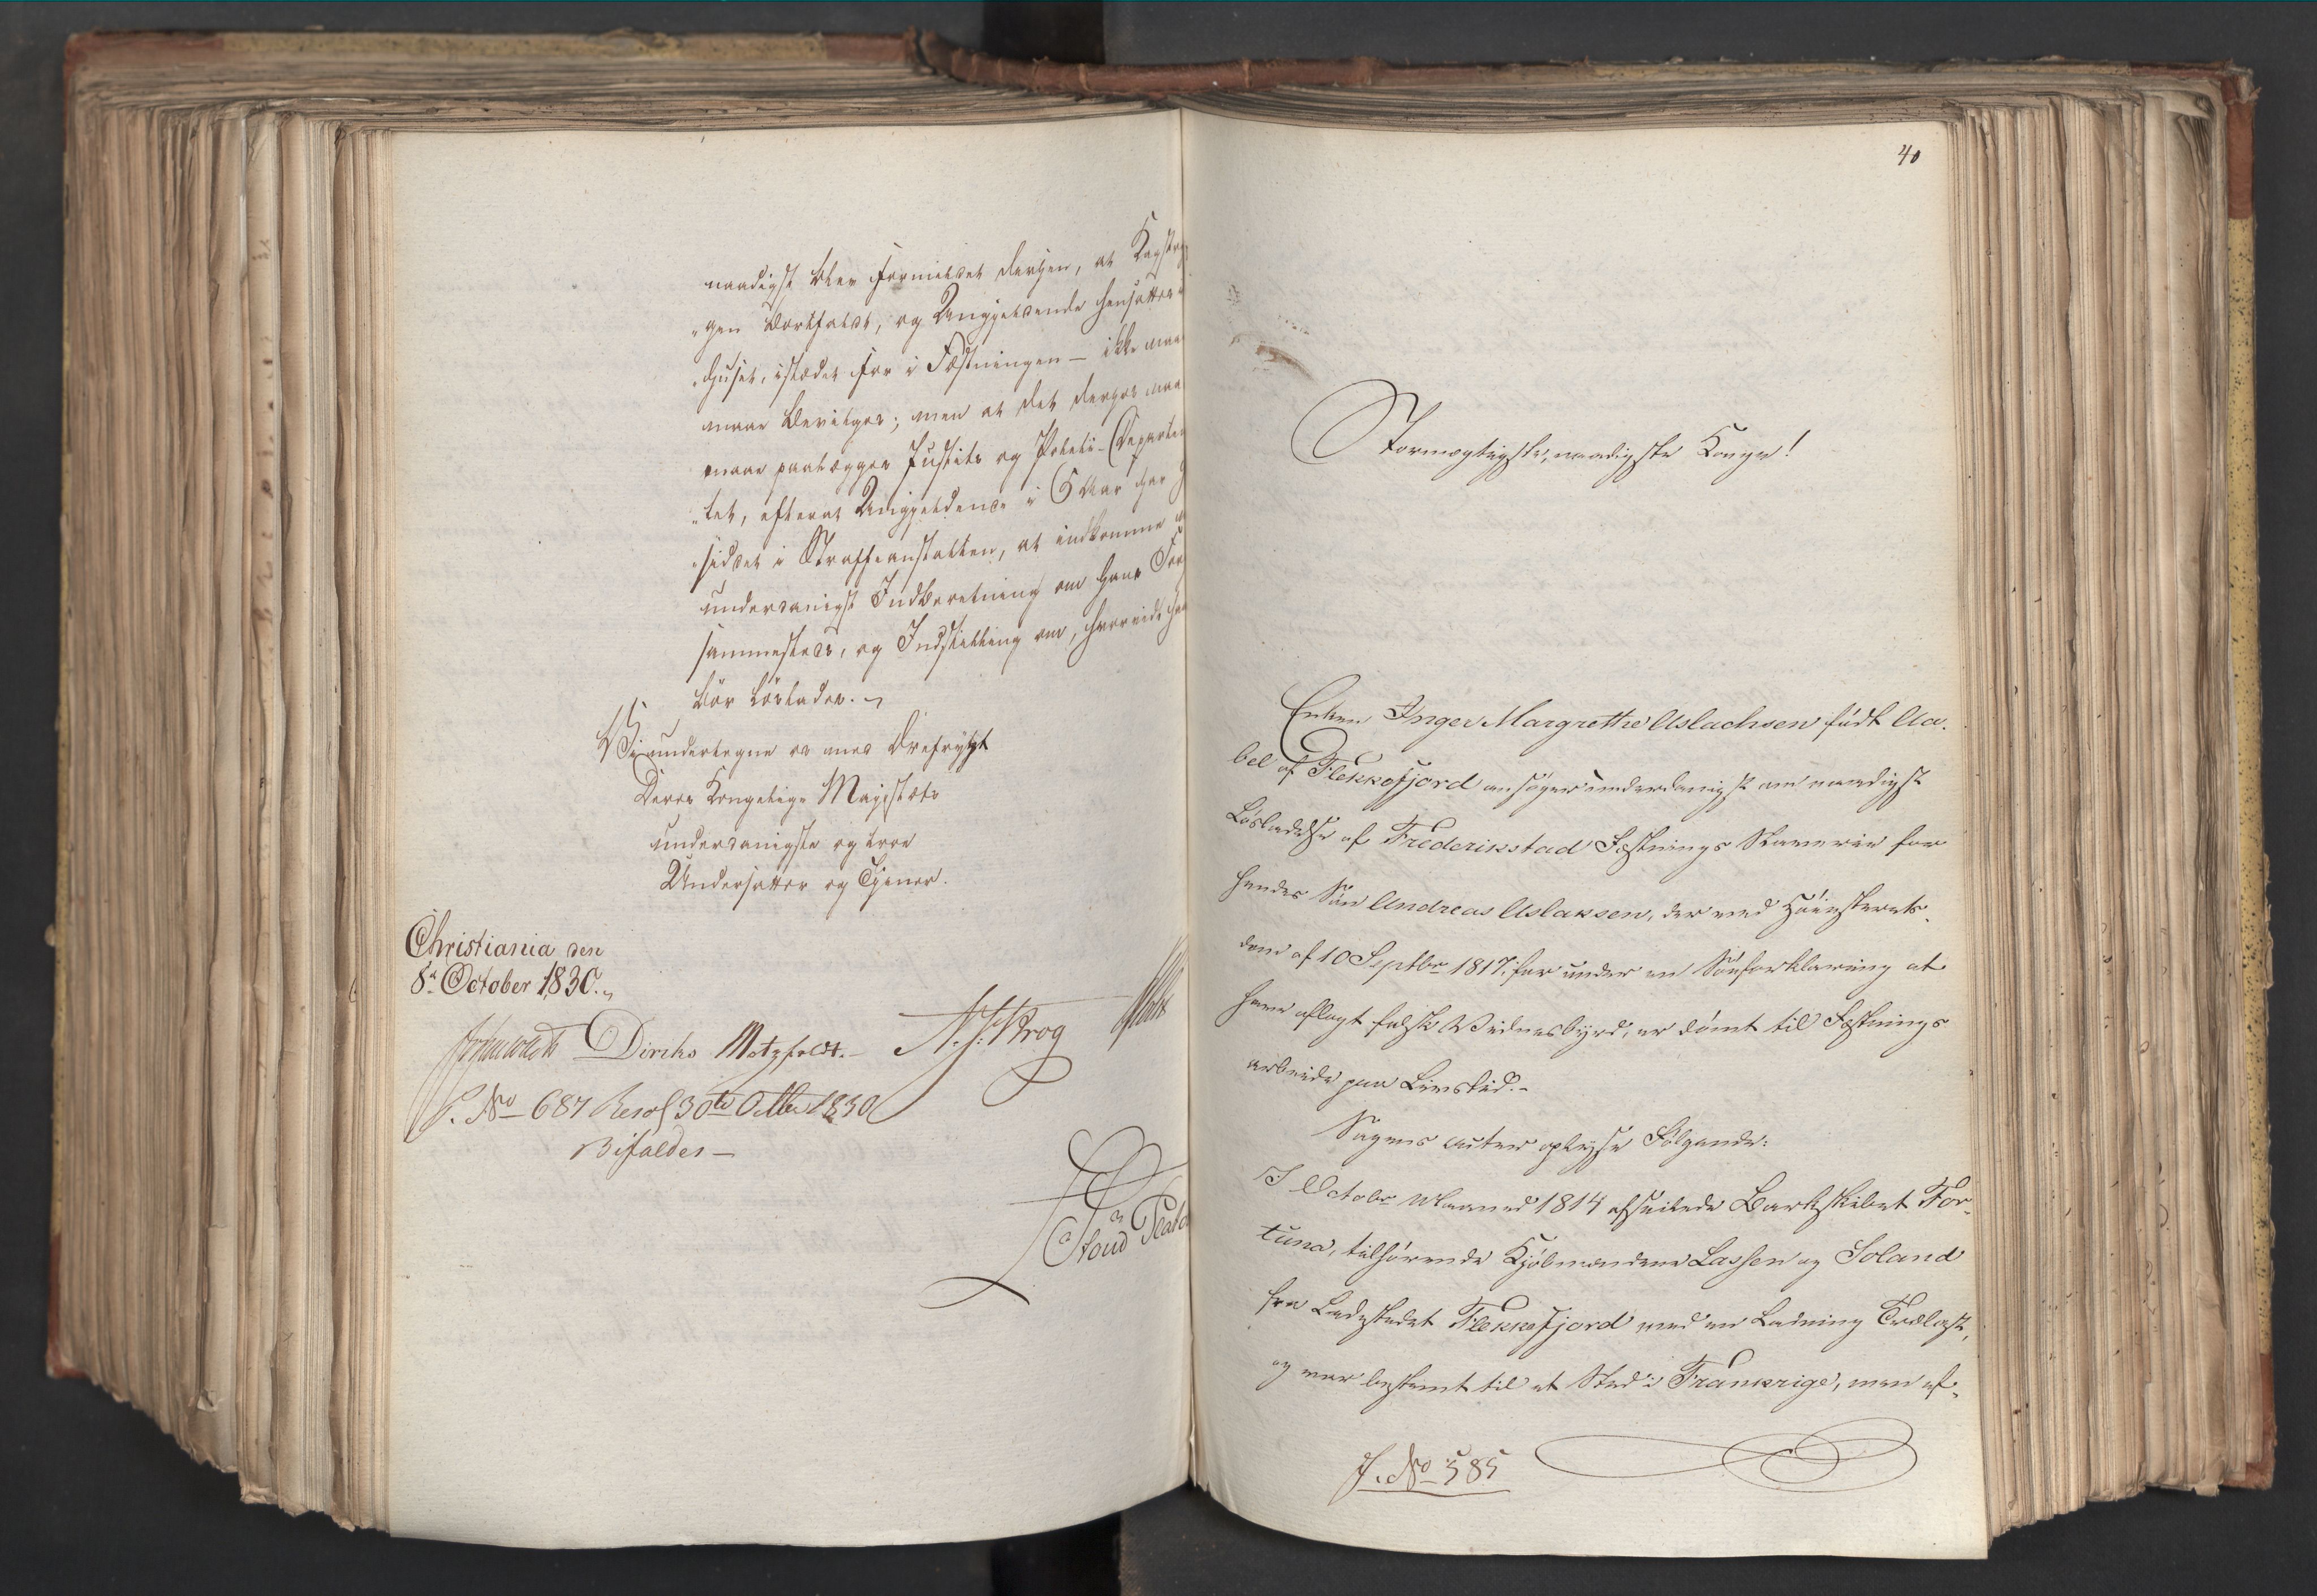 naadigst blev formildet derhen, at Kagstry
„gen bortfaldt, og Angjeldende hensættes i
„huset, istedet for i Fæstningen — ikke maa
maae bevilges; men at det derhos maa
maae paalægges Justits og Politi-Departe
„tet, efterat Angjeldende i 5 Aar har
„siddet i Straffeanstalten, at indkomme
underdanigst Indberetning om hans For
sammesteds, og Indstilling om, hvorvidt han
bör löslades.
Vi undertegne os med Ærefrygt
Deres Kongelige Majestæts
underdanigste og troe
Undersatter og Tjener.
Christiania den
8de October 1830.
Diriks Motzfeldt. N. J: Krog Holst
P. No 687 Resol 30te Octbr 1830
Bifaldes —
40
Stormægtigste, naadigste Konge!
Enken Inger Margrethe Aslachsen födt Aa-
bel af Flekkefjord ansöger underdanigst om naadigst
Lösladelse af Frederikstad Fæstnings Slaverie for
hendes Sön Andreas Aslaksen, der ved Höiesterets-
dom af 10 Septbr 1817, for under en Söeforklaring at
have aflagt falsk Vidnesbyrd, er dömt til Fæstnings
arbeide paa Livstid.-
Sagens Acter oplyse Fölgende:
I Octobr Maaned 1814 afseilede Barkskibet For-
tuna, tilhörende Kjöbmændene Lassen og Soland
fra Ladestedet Flekkefjord med en Ladning Trælast,
og var bestemt til et Sted i Frankrige, men ef-
J. No 585